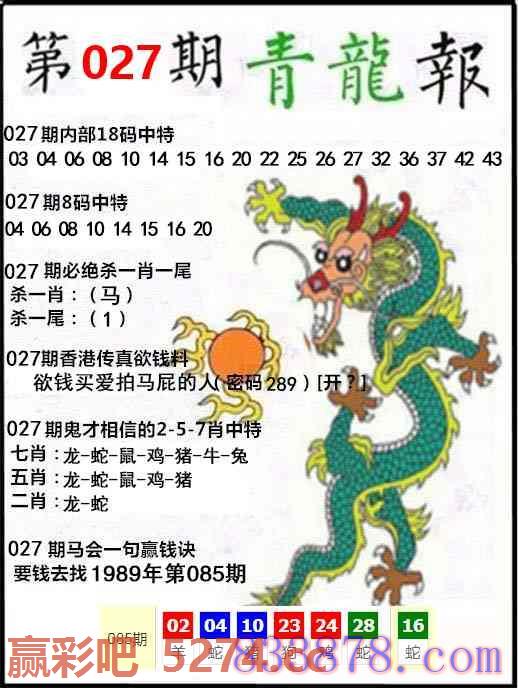 第027期青龍報
027期内部18码中特
03 04 06 08 10 14 15 16 20 22 25 26 27 32 36 37 42 43
027期8码中特
04 06 08 10 14 15 16 20
027 期必绝杀一肖一尾
杀一肖：（马）
杀一尾：（1）
027期香港传真欲钱料
欲钱买爱拍马屁的人（密码289）[开？]
027期鬼才相信的2-5-7肖中特
七肖：龙-蛇-鼠-鸡-猪-牛-兔
五肖：龙-蛇-鼠-鸡-猪
二肖：龙-蛇
027 期马会一句赢钱诀
要钱去找1989年第085期
085期 02 04 10 23 24 28 16
羊 蛇 猪 狗 鸡 蛇 蛇
赢彩吧
838878.com